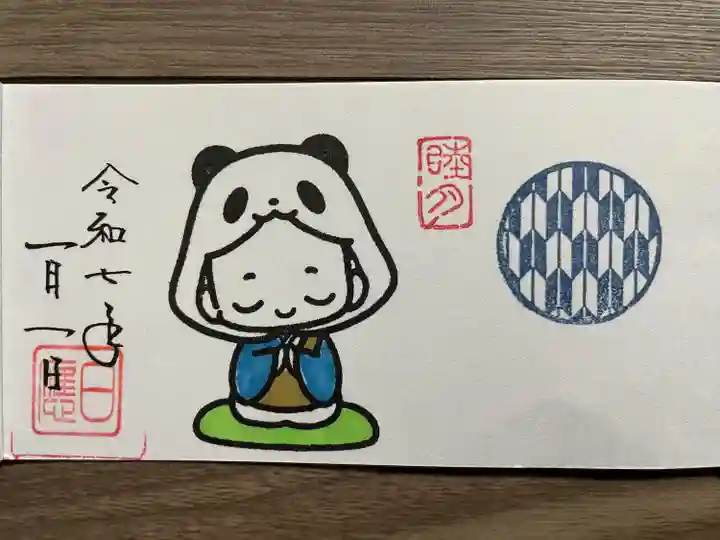 睦月
令和七年
一月一日